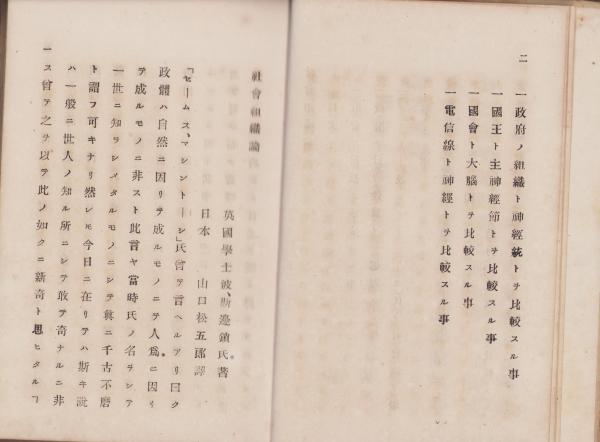 二
一政府ノ組織ト神經統トヲ比較スル事
一國王ト主神經節トヲ比較スル事
一國會ト大腦トヲ比較スル事
一電信線ト神經トヲ比較スル事
社會組織論
英國學士波、斯邊鎖氏著
日本 山口松五郎譯
「ゼームス、マシントーシ」氏曾テ言ヘルアリ曰ク
政體ハ自然ニ因リテ成ルモノニテ人爲ニ因リ
テ成ルモノニ非スト此言ヤ當時氏ノ名ヲシテ
一世ニ知ラシメタルモノニシテ眞ニ千古不磨
ト謂フ可キナリ然レモ今日ニ在リテハ斯キ説
ハ一般ニ世人ノ知ル所ニシテ敢テ奇ナルニ非
ス曾テ之ヲ以テ此ノ如クニ新奇ト思ヒタルヿ
一